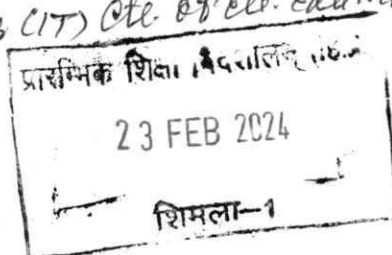 (IT) Dte. of Ele. Edu
प्रारम्भिक शिक्षा
23 FEB 2024
शिमला-1